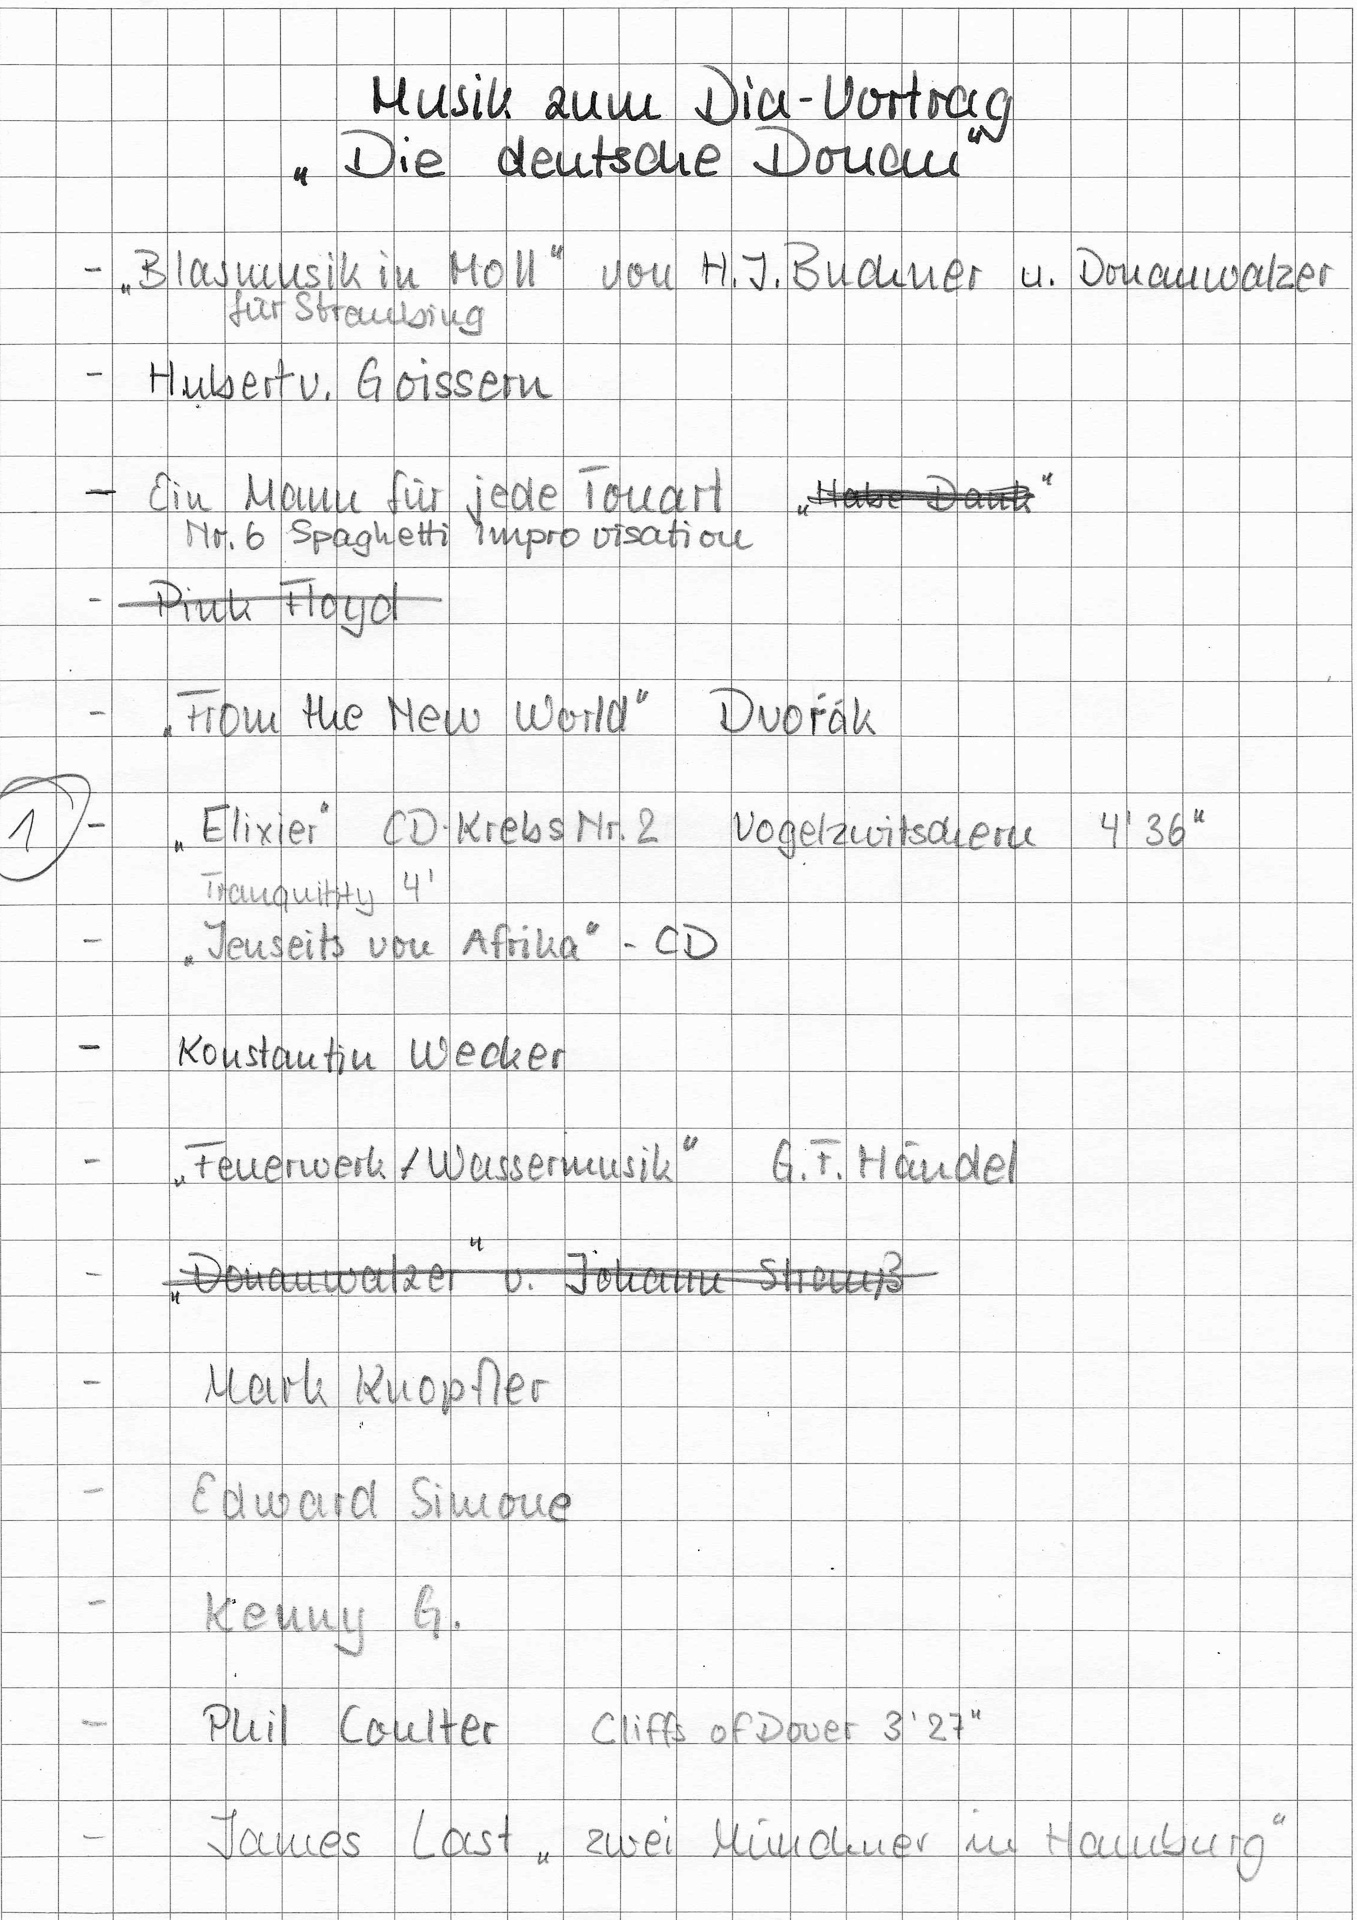 Musik zum Dia-Vortrag
„Die deutsche Donau"
- „Blasmusik in Moll" von H.J. Buchner u. Donauwalzer
für Straubing
- Hubert v. Goissern
- Ein Mann für jede Tonart „Habe Dank"
Nr. 6 Spaghetti Improvisation
- Pink Floyd
- „From the New World" Dvořák
1 - „Elixier" CD-Krebs Nr. 2 Vogelzwitschern 4'36"
Tranquility 4'
- „Jenseits von Afrika" - CD
- Konstantin Wecker
- „Feuerwerk/Wassermusik" G.F. Händel
- „Donauwalzer" v. Johann Strauß
- Mark Knopfler
- Edward Simone
- Kenny G.
- Phil Coulter Cliffs of Dover 3'27"
- James Last „zwei Münchner in Hamburg"